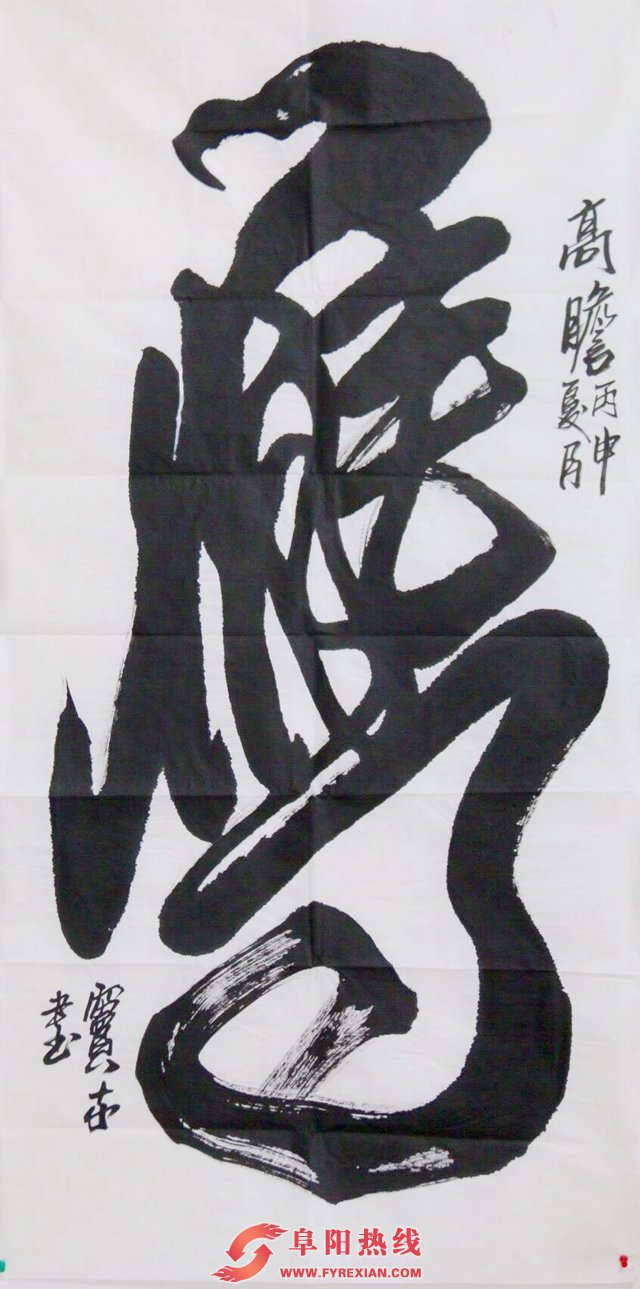 鷹
高瞻
丙申
夏月
寶
書
阜阳热线
WWW.FYREXIAN.COM